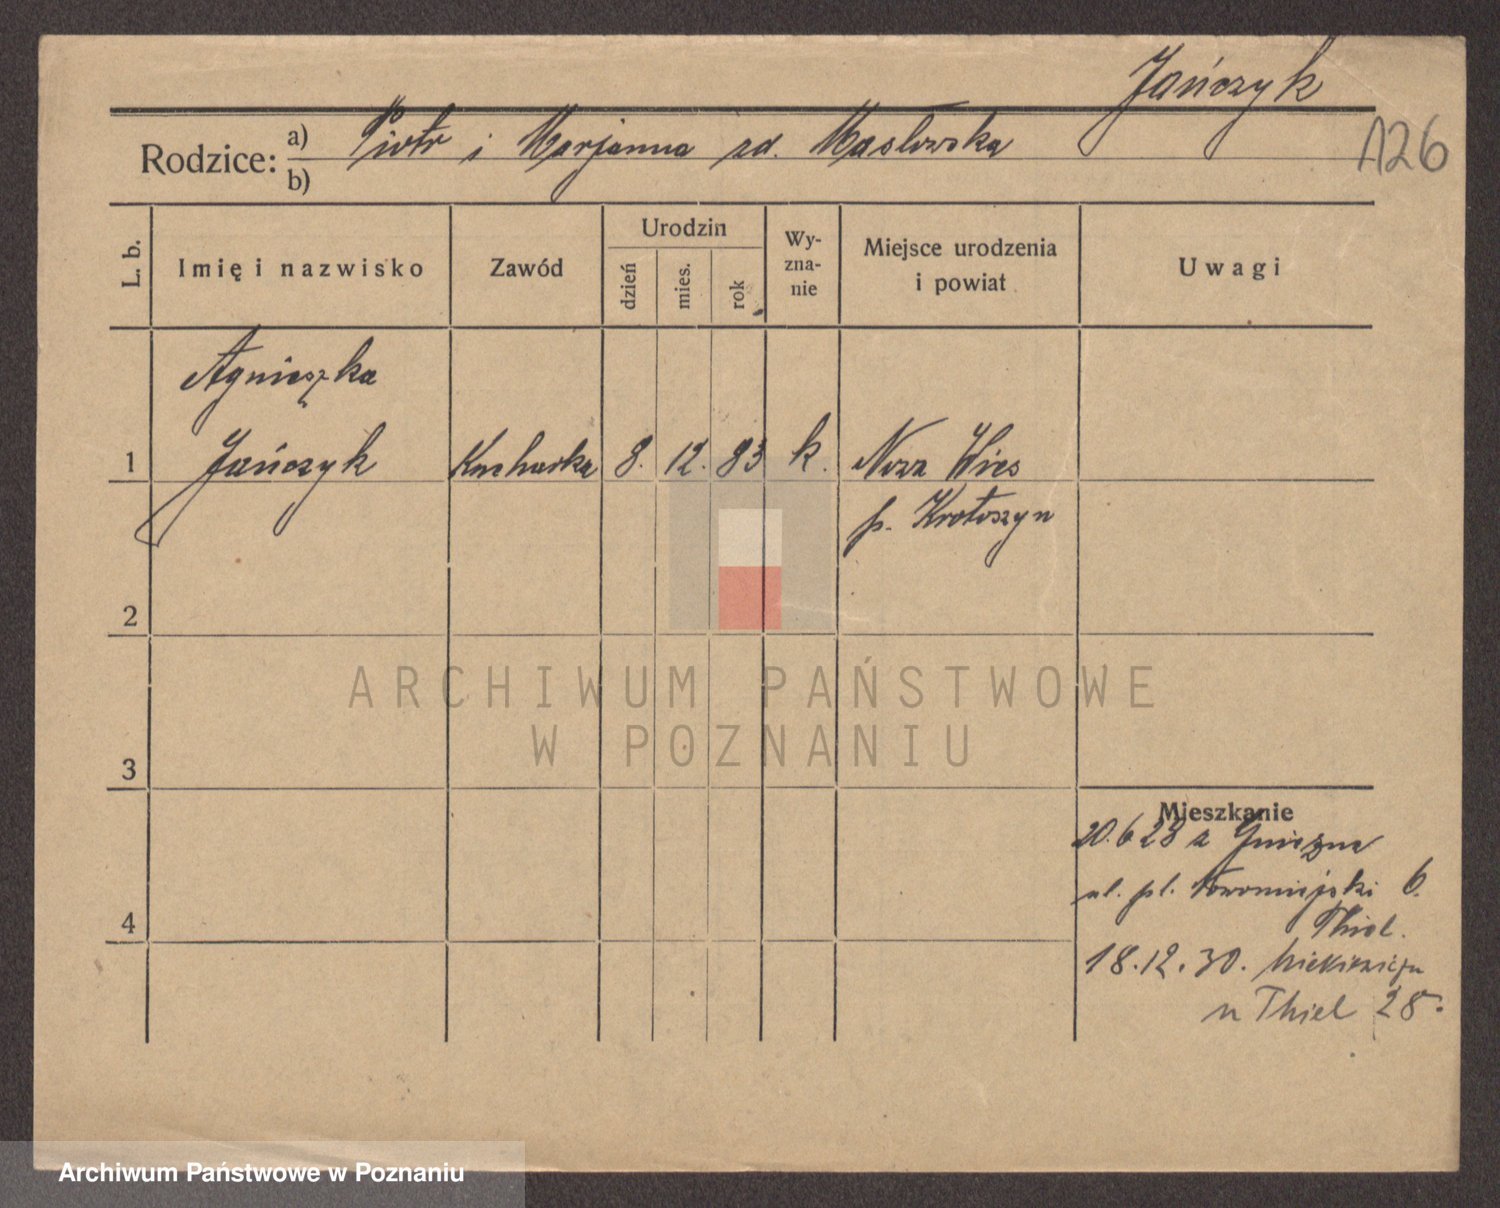 Jańczyk
126
Rodzice: a) Piotr i Marjanna zd. Masłowska
b)
L. b.
Imię i nazwisko
Zawód
Urodzin
dzień
mies.
rok
Wy-
zna-
nie
Miejsce urodzenia
i powiat
Uwagi
Agnieszka
1 Jańczyk Kucharka 8. 12. 83 k. Nowa Wieś
p. Krotoszyn
2
3
4
Mieszkanie
20.6 23 z Gniezna
ul. pl. Nowomiejski 6.
Thiel.
18.12.30.
u Thiel 28.
ARCHIWUM PAŃSTWOWE
W POZNANIU
Archiwum Państwowe w Poznaniu